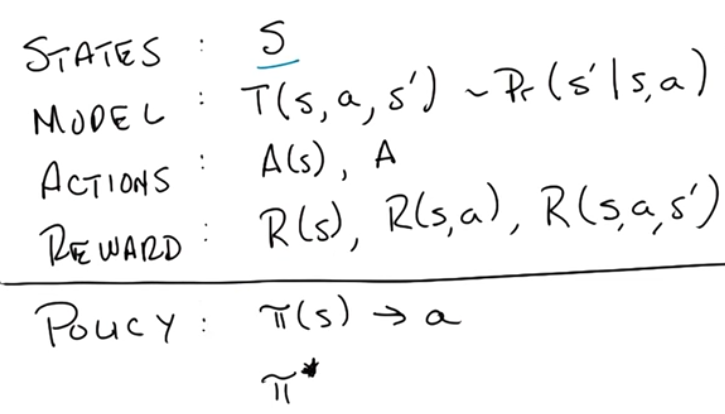 STATES : S
MODEL : T(s, a, s') ~ Pr(s' | s, a)
ACTIONS : A(s), A
REWARD : R(s), R(s,a), R(s,a,s')
POLICY : π(s) → a
π*